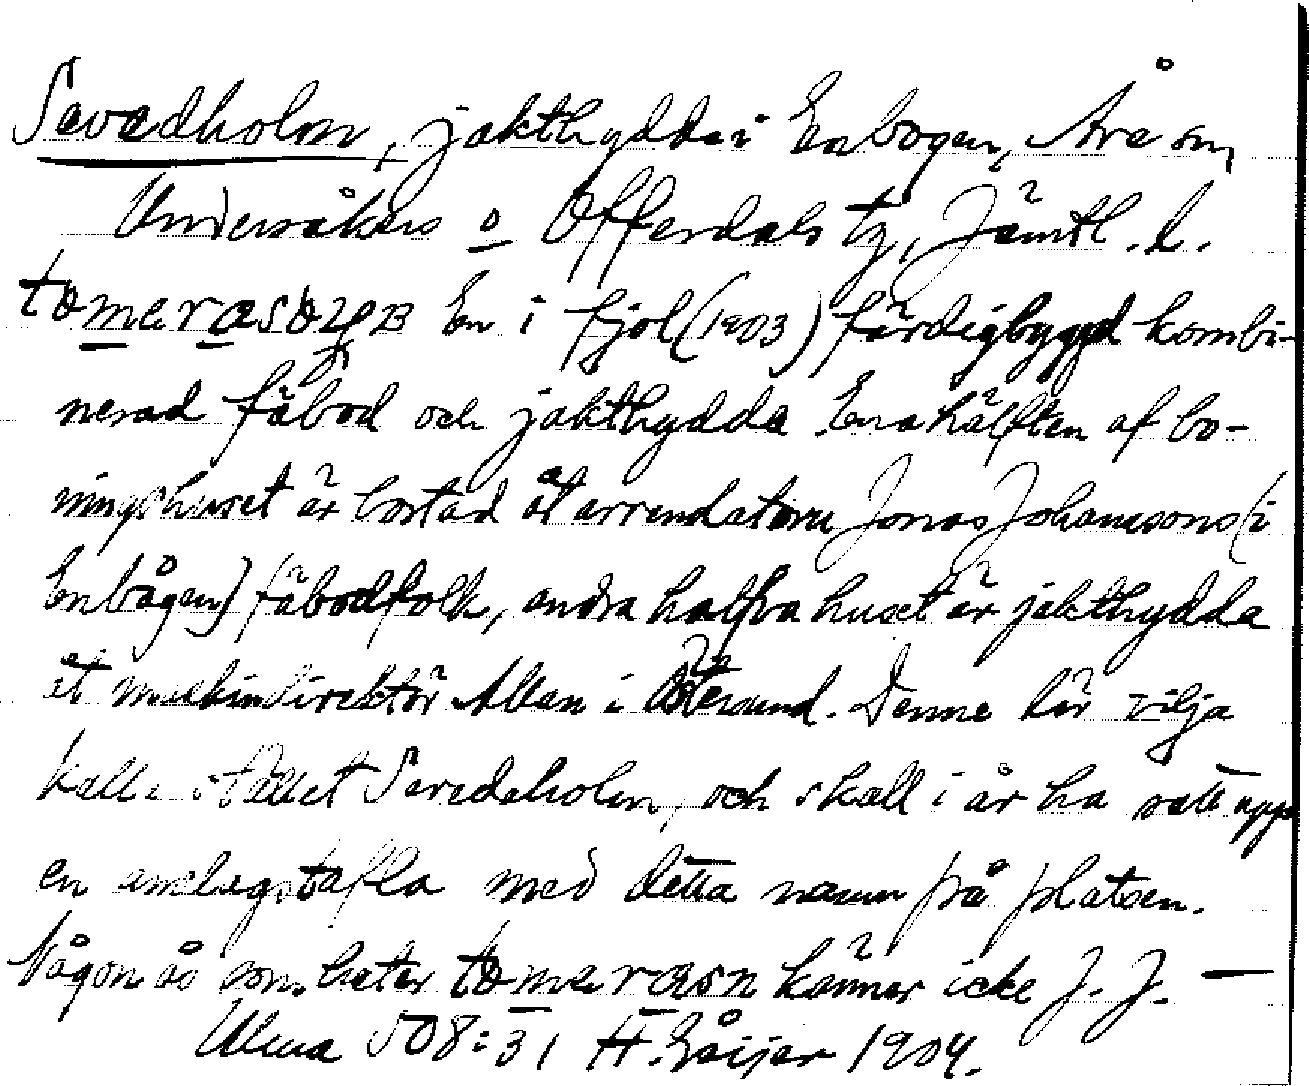 Svedholm, jakthydda i Enbogen, Åre sn,
Undersåkers o Offerdals tg, Jämtl. l.
En i fjol (1903) färdigbyggd kombi-
nerad fäbod och jakthydda. Ena hälften af bo-
ningshuset är bostad åt arrendatorn Jonas Johanssons (i
Enbågen) fäbodfolk, andra halfva huset är jakthydda
åt maskindirektör Allan i Östersund. Denne lär vilja
kalla stället Svedeholm, och skall i år ha satt upp
en anslagstafla med detta namn på platsen.
Någon ås som heter känner icke J. J. —
Ulma 508:31 H. Geijer 1904.